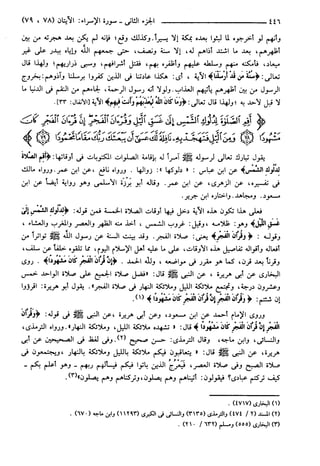 ٤٤٦ الجزء الثانى - سورة الإسراء: الآيتان (٧٨ ، ٧٩)
وأنهم لو أخرجوه لما لبثوا بعده بمكة إلا يسيراً. وكذلك وقع؛ فإنه لم يكن بعد هجرته من بين
أظهرهم، بعد ما اشتد أذاهم له، إلا سنة ونصف، حتى جمعهم الله وإياه ببدر على غير
ميعاد، فأمكنه منهم وسلطه عليهم وأظفره بهم، فقتل أشرافهم، وسبى ذراريهم؛ ولهذا قال
تعالى: ﴿سنة من قد أرسلنا﴾ الآية، أى: هكذا عادتنا فى الذين كفروا برسلنا وآذوهم؛ بخروج
الرسول من بين أظهرهم يأتيهم العذاب. ولولا أنه رسول الرحمة، لجاءهم من النقم فى الدنيا ما
لا قبل لأحد به؛ ولهذا قال تعالى: ﴿وما كان الله ليعذبهم وأنت فيهم﴾ الآية [الأنفال: ٣٣].
﴿أقم الصلاة لدلوك الشمس إلى غسق الليل وقرآن الفجر إن قرآن الفجر كان
مشهودا ومن الليل فتهجد به نافلة لك عسى أن يبعثك ربك مقاما محمودا﴾
يقول تبارك تعالى لرسوله ﷺ آمراً له بإقامة الصلوات المكتوبات فى أوقاتها: ﴿أقم الصلاة
لدلوك الشمس﴾ عن ابن عباس: « دلوكها »: زوالها. ورواه نافع، عن ابن عمر. ورواه مالك
فى تفسيره، عن الزهرى، عن ابن عمر. وقاله أبو برزة الأسلمى وهو رواية أيضا عن ابن
مسعود. ومجاهد. واختاره ابن جرير.
فعلى هذا تكون هذه الآية دخل فيها أوقات الصلاة الخمسة فمن قوله: ﴿لدلوك الشمس إلى
غسق الليل﴾ وهو: ظلامه، وقيل: غروب الشمس، أخذ منه الظهر والعصر والمغرب والعشاء،
وقوله: ﴿وقرآن الفجر﴾ يعنى: صلاة الفجر. وقد بينت السنة عن رسول الله ﷺ تواتراً من
أفعاله وأقواله تفاصيل هذه الأوقات، على ما عليه أهل الإسلام اليوم، مما تلقوه خلفاً عن سلف،
وقرناً بعد قرن، كما هو مقرر فى مواضعه، ولله الحمد. ﴿إن قرآن الفجر كان مشهودا﴾. روى
البخارى عن أبى هريرة، عن النبى ﷺ قال: «فضل صلاة الجميع على صلاة الواحد خمس
وعشرون درجة، وتجتمع ملائكة الليل وملائكة النهار فى صلاة الفجر». يقول أبو هريرة: اقرؤوا
إن شئتم: ﴿وقرآن الفجر إن قرآن الفجر كان مشهودا﴾ (١).
وروى الإمام أحمد عن ابن مسعود، وعن أبى هريرة، عن النبى ﷺ فى قوله: ﴿وقرآن
الفجر إن قرآن الفجر كان مشهودا﴾ قال: « تشهده ملائكة الليل، وملائكة النهار». ورواه الترمذى،
والنسائى، وابن ماجه، وقال الترمذى: حسن صحيح (٢). وفى لفظ فى الصحيحين عن أبى
هريرة، عن النبى ﷺ قال: « يتعاقبون فيكم ملائكة بالليل وملائكة بالنهار، ويجتمعون فى
صلاة الصبح وفى صلاة العصر، فيعرج الذين باتوا فيكم فيسألهم ربهم - وهو أعلم بكم -
كيف تركتم عبادى؟ فيقولون: أتيناهم وهم يصلون، وتركناهم وهم يصلون»(٣).
(١) البخارى (٤٧١٧).
(٢) المسند (٢ / ٤٧٤) والترمذى (٣١٣٥) والنسائى فى الكبرى (١١٢٩٣) وابن ماجه (٦٧٠).
(٣) البخارى (٥٥٥) ومسلم (٦٣٢ / ٢١٠).